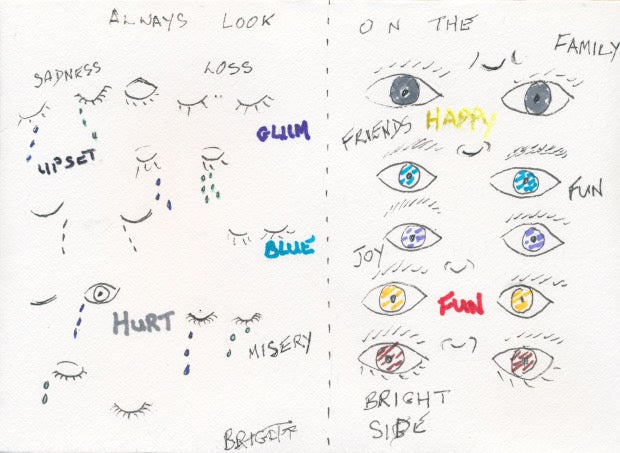 ALWAYS LOOK
SADNESS
LOSS
GLUM
UPSET
BLUE
HURT
MISERY
ON THE
FAMILY
FRIENDS HAPPY
FUN
JOY
FUN
BRIGHT
SIDE